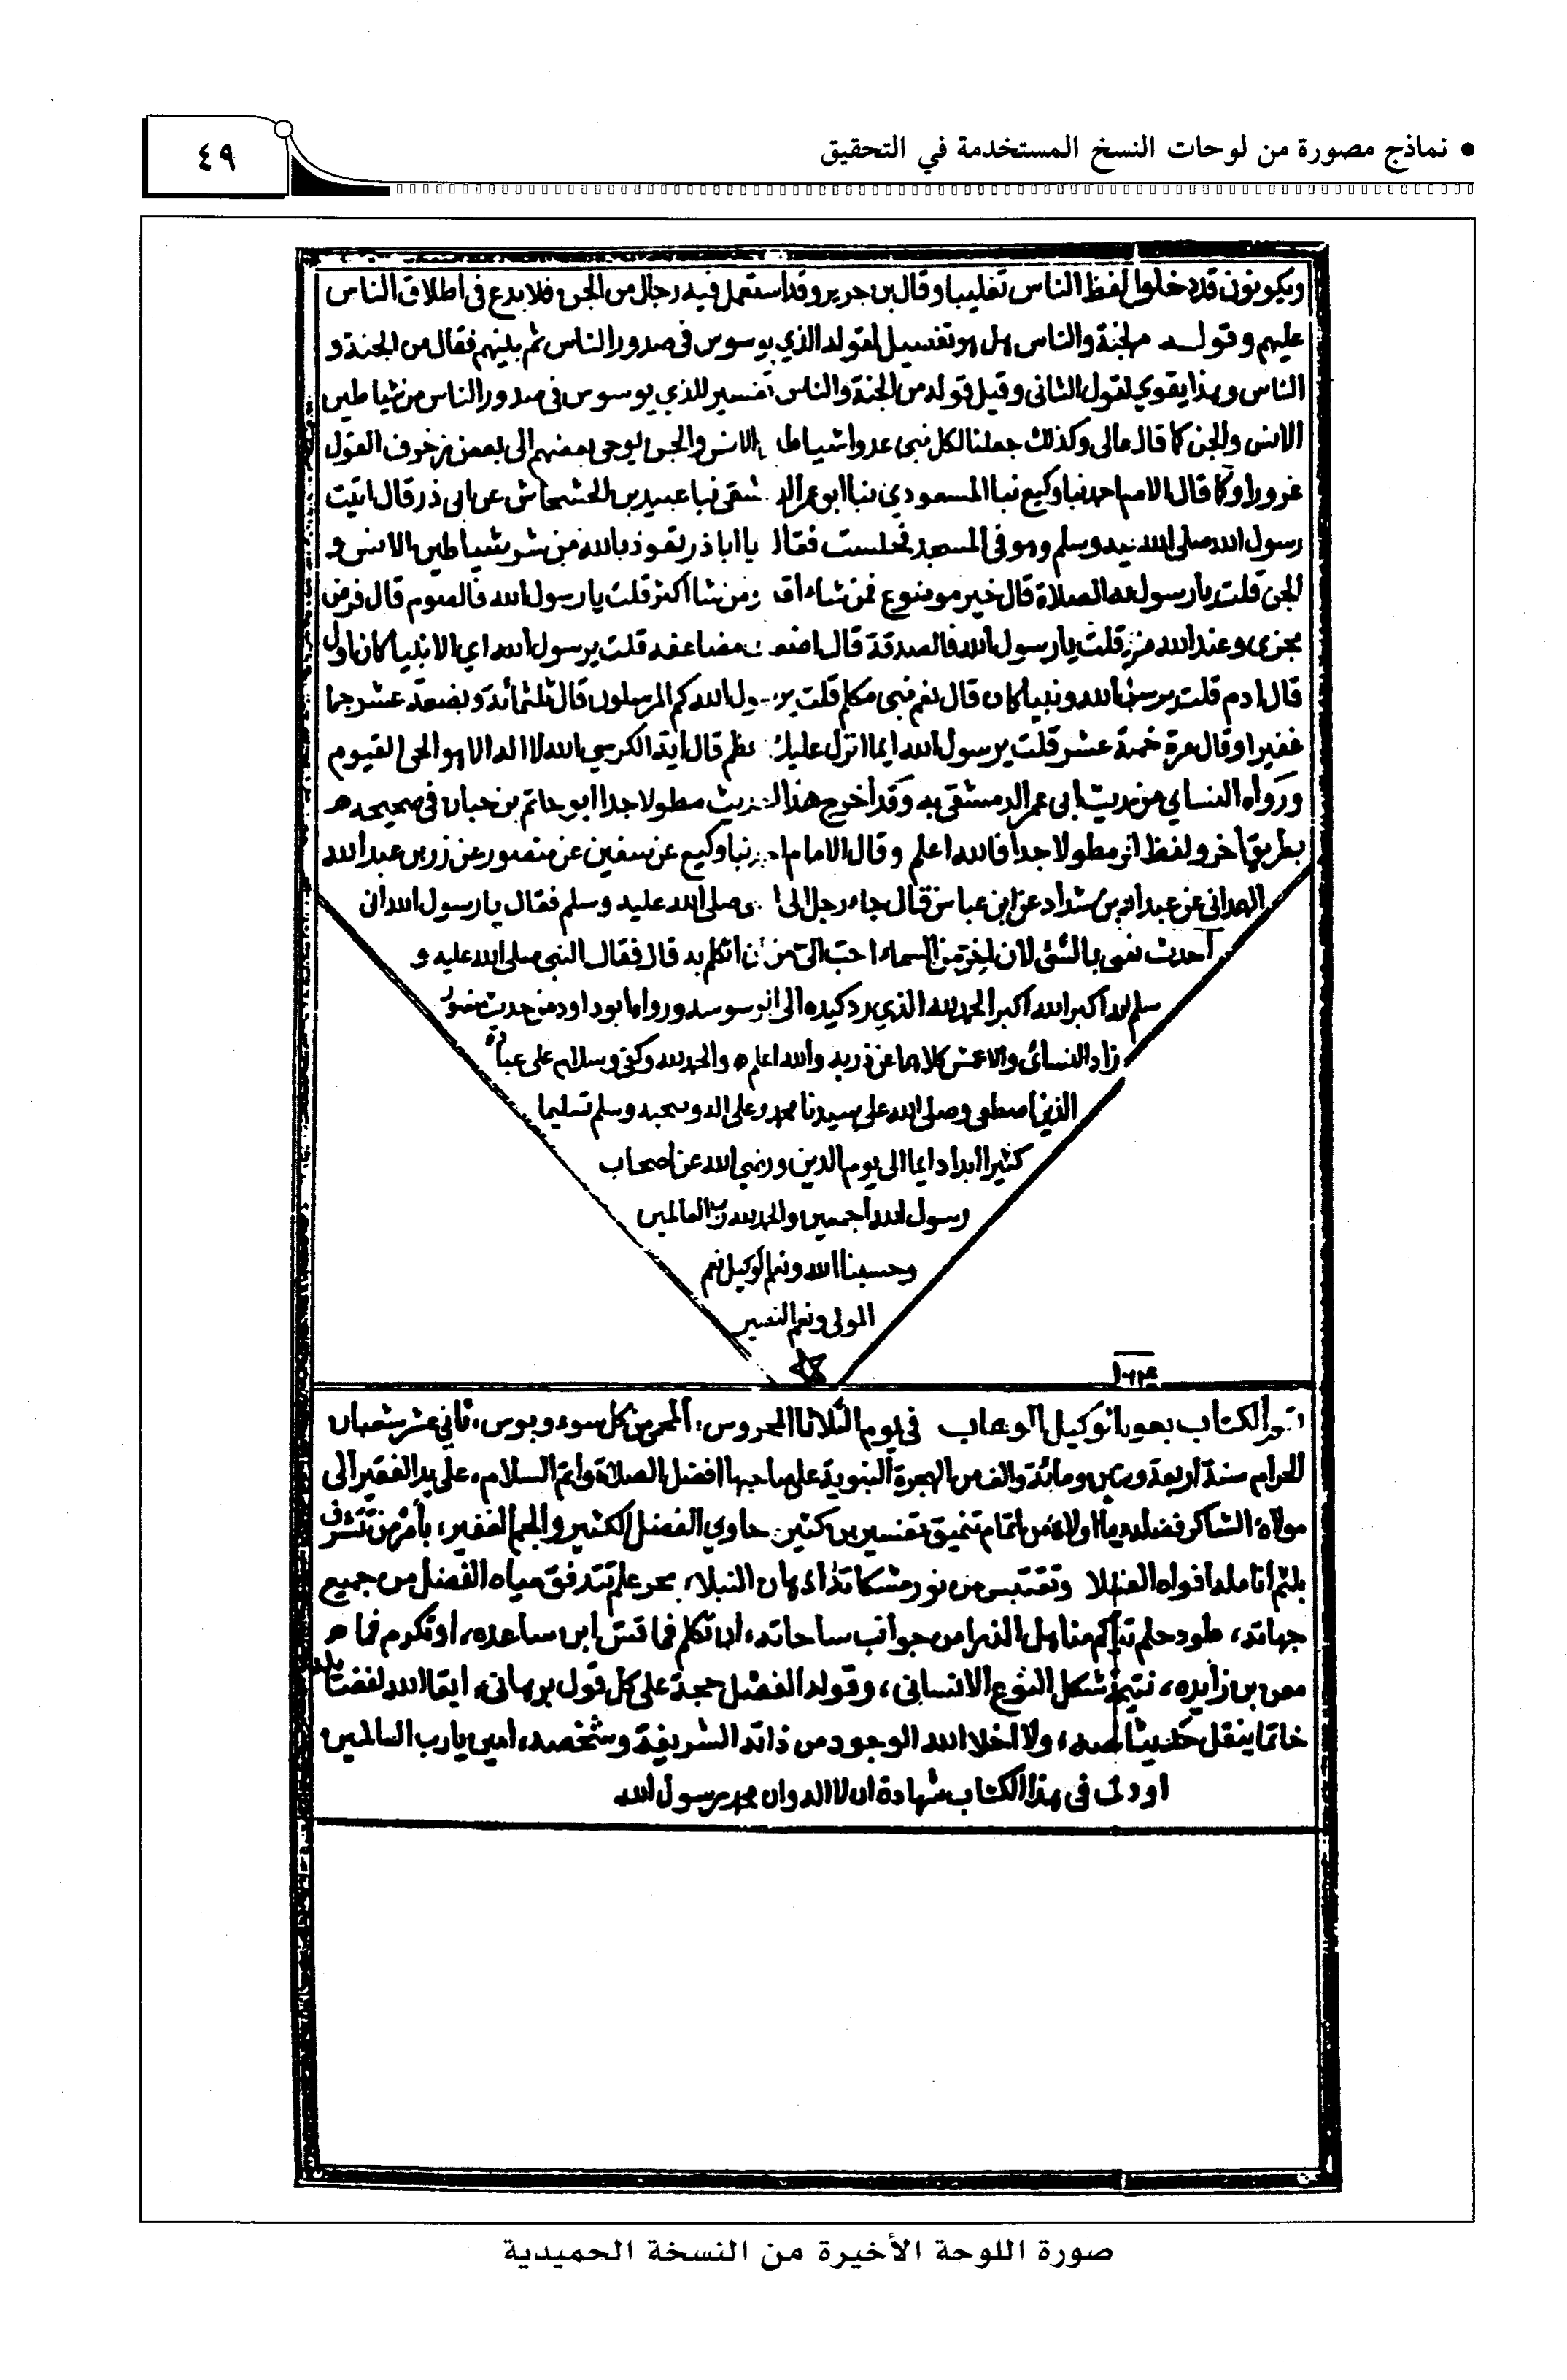 • نماذج مصورة من لوحات النسخ المستخدمة في التحقيق
٤٩
ويكونون قد دخلوا لفظ الناس تغليبا وقال بن جرير وقد استعمل فيه رجال من الجن فلا بدع في اطلاق الناس
عليهم وقوله من الجنة والناس هل هو تفسيل لقوله الذي يوسوس في صدور الناس ثم بينهم فقال من الجنة و
الناس وهذا يقوي لقول الثاني وقيل قوله من الجنة والناس تفسير للذي يوسوس في صدور الناس من شياطين
الانس والجن كما قال عالى وكذلك جعلنا لكل نبي عدوا شياط الانس والجن يوحي بعضهم الى بعض زخرف القول
غرورا وكما قال الامام احمد نبا وكيع نبا المسعودي نبا ابو عمر الد شقي نبا عبيد بن الخشخاش عن ابي ذر قال اتيت
رسول الله صلى الله يه وسلم وهو في المسجد فجلست فقال يا اباذر تعوذ بالله من شر شياطين الانس و
الجن قلت يا رسول الله الصلاة قال خير موضوع فمن شاء اق ومن شا اكثر قلت يا رسول الله فالصوم قال فرض
مجزى وعند الله مزيد قلت يا رسول الله فالصدقة قال اضعـ ـ مضاعفه قلت يرسول الله اي الانبيا كان اول
قال ادم قلت يرسول الله ونبيا كان قال نعم نبي مكلم قلت ير ول الله كم المرسلون قال ثلثمائة وبضعة عشر جما
غفيرا وقال مرة خمسة عشر قلت يرسول الله ايما انزل عليك ـعظم قال اية الكرسي الله لا اله الا هو الحي القيوم
ورواه النساي من ديث ابي عمر الدمشقي به وقد اخرج هذا الـ ديث مطولا جدا ابو حاتم بن حبان في صحيحه
بطريق اخر ولفظ اخر مطولا جدا فالله اعلم وقال الامام احمد نبا وكيع عن سفين عن منصور عن زر بن عبد الله
الهمداني عن عبد الله بن شداد عن ابن عباس قال جاء رجل الى ـي صلى الله عليه وسلم فقال يا رسول الله اني
احدث نفسي بالشئ لان اخر من السماء احب الي من ان اتكلم به قال فقال النبي صلى الله عليه و
سلم الله اكبر الله اكبر الحمد لله الذي رد كيده الى الوسوسه ورواه ابو داود من حديث منصور
زاد النسائى والاعمش كلاهما عن ذر به والله اعلم ه والحمد لله وكفى وسلام على عباده
الذين اصطفى وصلى الله على سيدنا محمد وعلى اله وصحبه وسلم تسليما
كثيرا ابدا دايما الى يوم الدين ورضي الله عن اصحاب
رسول الله اجمعين والحمد لله رب العالمين
وحسبنا الله ونعم الوكيل نعم
المولى ونعم النصير
تم الكتاب بعون الوكيل الوهاب في يوم الثلاثا المحروس، المحمى من كل سوء وبوس، ثاني عشر شعبان
الحرام سنة اربعة وستين ومائة والف من الهجرة النبوية على صاحبها افضل الصلاة واتم السلام، على يد الفقير الى
مولاه الشاكر فضله بما اولاه من اتمام تنميق تفسير بن كثير حاوي الفضل الكثير والجم الغفير، بأمر من تتشرف
بلثم انامله افواه الفضلا وتقتبس من نور مشكاته اذهان النبلا، بحر علم تتدفق مياه الفضل من جميع
جهاته، طود حلم مناهل من جوانب ساحاته، ان تكلم فما قس ابن ساعده، او تكرم فما هر
معن بن زايده، نتيجة شكل النوع الانساني، وقوله الفضل حجة على كل قول برهاني، ابقا الله
خاتما بنقل ولا اخلا الله الوجود من ذاته الشريفة وشخصه، امين يا رب العالمين
اودعت في هذا الكتاب شهادة ان لا اله وان محمد رسول الله
صورة اللوحة الأخيرة من النسخة الحميدية